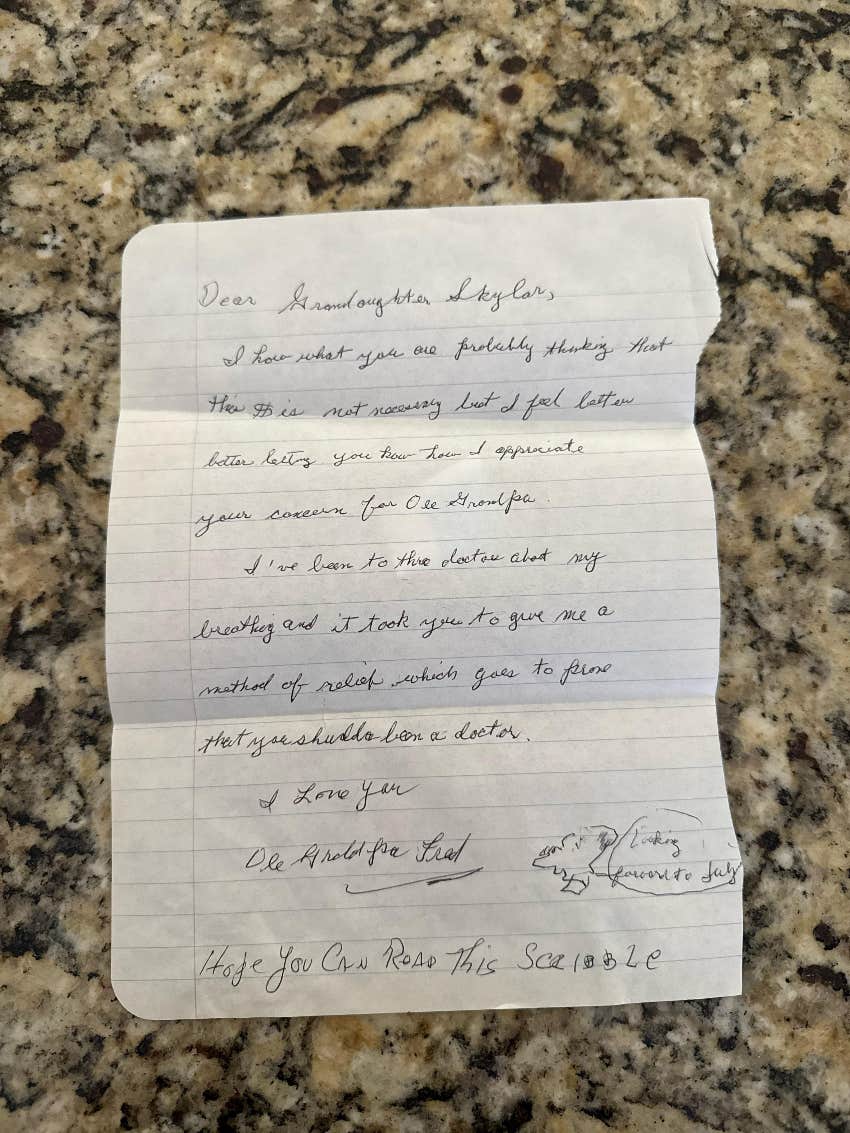 Dear Grandoughter Skylar,
I know what you are probably thinking that
this is not necessary but I feel better
better letting you know how I appreciate
your concern for Ole Grandpa.
I've been to three doctors about my
breathing and it took you to give me a
method of relief which goes to prove
that you shudda been a doctor.
I Love You
Ole Grandpa Fred
Looking
forward to July
Hope You Can Read This Scribble